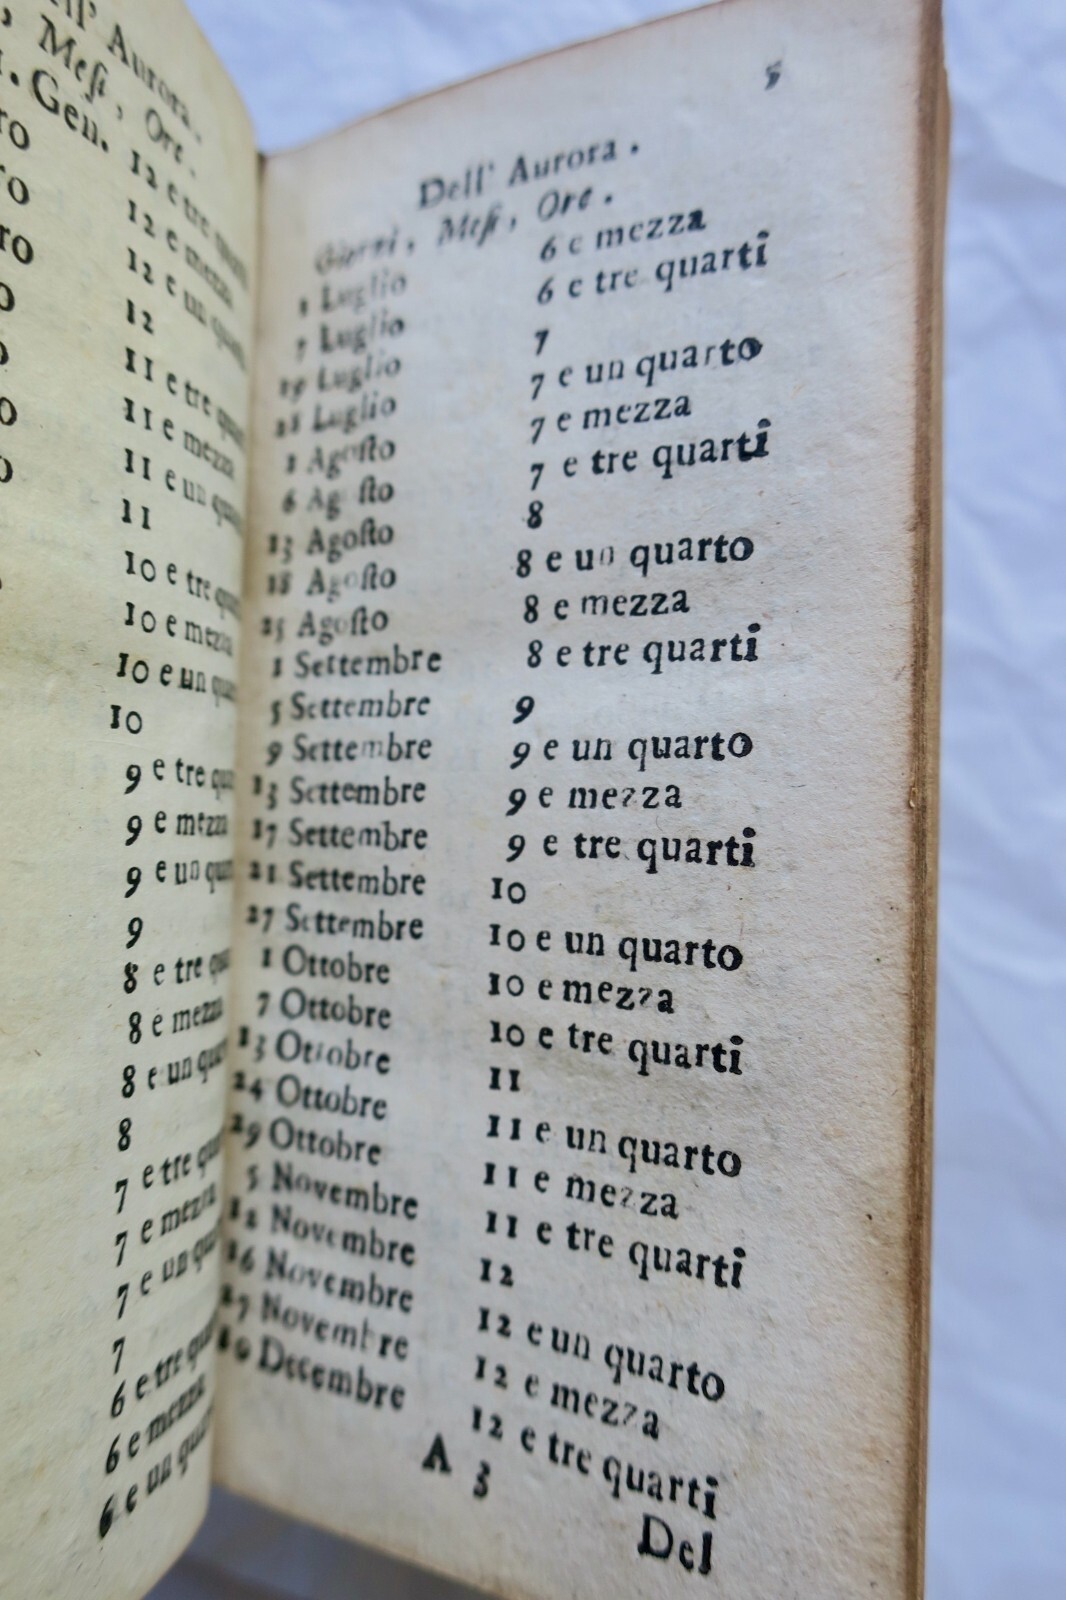 Aurora.
Mesi, Ore.
Gen. 12 e tre
ro 12 e mezza
ro 12 e un
ro 12
11 e tre
11 e mezza
11 e un
11
10 e tre
10 e mezza
10 e un
10
9 e tre
9 e mezza
9 e un
9
8 e tre
8 e mezza
8 e un
8
7 e tre
7 e mezza
7 e un
7
6 e tre
6 e mezza
6 e un
5
Dell' Aurora.
Giorni, Mesi, Ore.
1 Luglio 6 e mezza
7 Luglio 6 e tre quarti
19 Luglio 7
28 Luglio 7 e un quarto
1 Agosto 7 e mezza
6 Agosto 7 e tre quarti
13 Agosto 8
18 Agosto 8 e un quarto
25 Agosto 8 e mezza
1 Settembre 8 e tre quarti
5 Settembre 9
9 Settembre 9 e un quarto
13 Settembre 9 e mezza
17 Settembre 9 e tre quarti
21 Settembre 10
27 Settembre 10 e un quarto
1 Ottobre 10 e mezza
7 Ottobre 10 e tre quarti
13 Ottobre 11
24 Ottobre 11 e un quarto
29 Ottobre 11 e mezza
5 Novembre 11 e tre quarti
12 Novembre 12
16 Novembre 12 e un quarto
27 Novembre 12 e mezza
Decembre 12 e tre quarti
A 3
Del